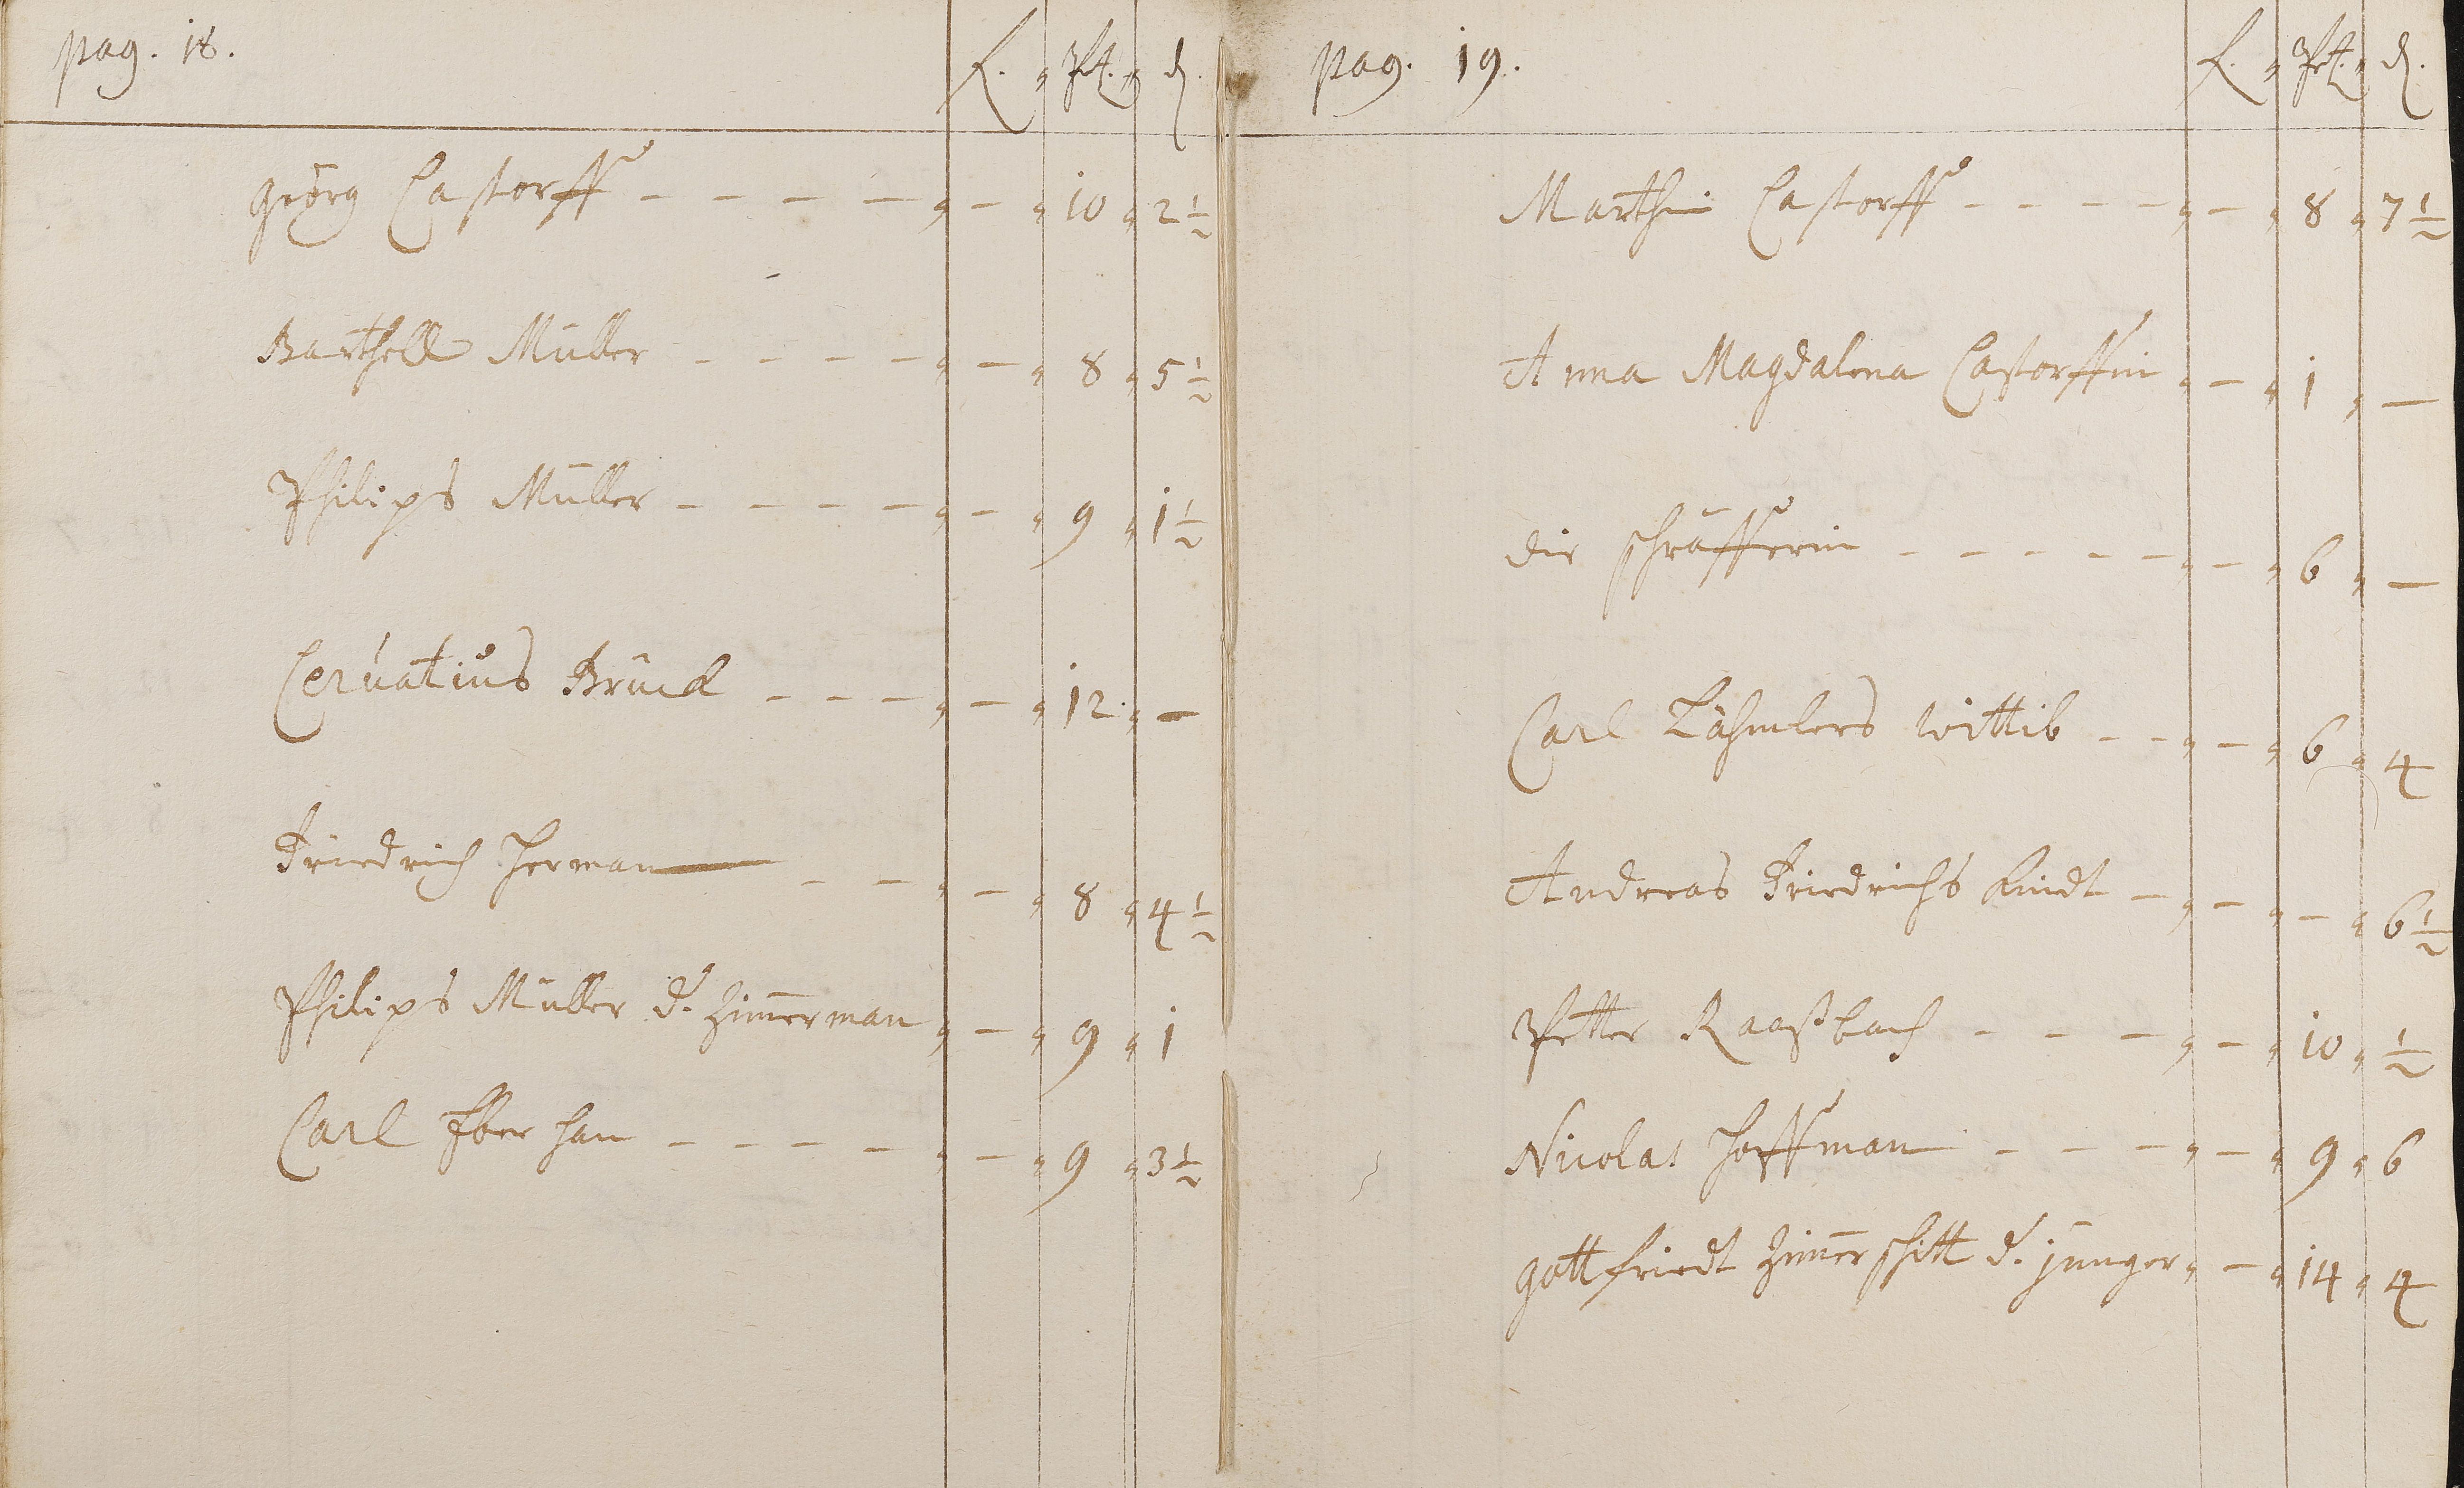 pag. 18. f. Pet. d.
Georg Castorff – – – – – 10 2½
Barthell Müller – – – – – 8 5½
Philips Müller – – – – – 9 1½
Ceruatius Brück – – – – 12. –
Friedrich Herman – – – 8 4½
Philips Müller d. Zim̄erman – 9 1
Carl Eberhan – – – – – 9 3½
pag. 19. f. Pet. d.
Marthin Castorff – – – – – 8 7½
Anna Magdalena Castorffin – 1 –
die schäfferin – – – – – – 6 –
Carl Lähmlers wittib – – – 6 4
Andreas Friedrichs Kindt – – – 6½
Petter Raaßbach – – – – 10 ½
Nicolas Hoffman – – – – 9 6
Gottfriedt Zim̄erschitt d. jünger – 14 4